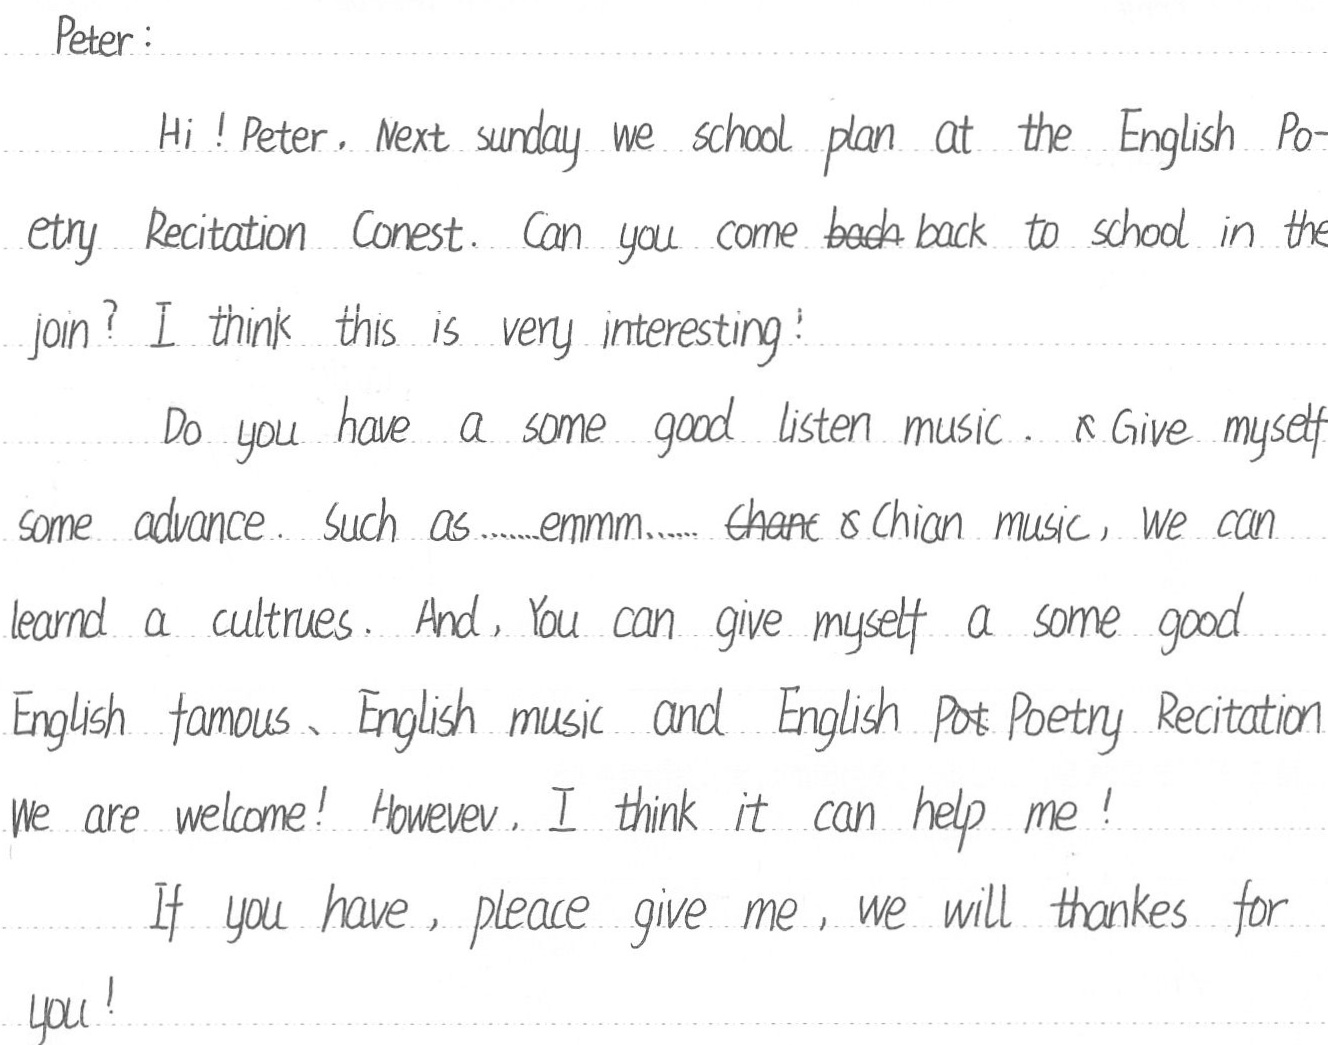 Peter:
Hi! Peter. Next sunday we school plan at the English Po-
etry Recitation Conest. Can you come back to school in the
join? I think this is very interesting!
Do you have a some good listen music. Give myself
some advance. Such as.......emmm...... Chian music, we can
learnd a cultrues. And, You can give myself a some good
English famous、English music and English Poetry Recitation
We are welcome! However, I think it can help me!
If you have, pleace give me, we will thankes for
you!